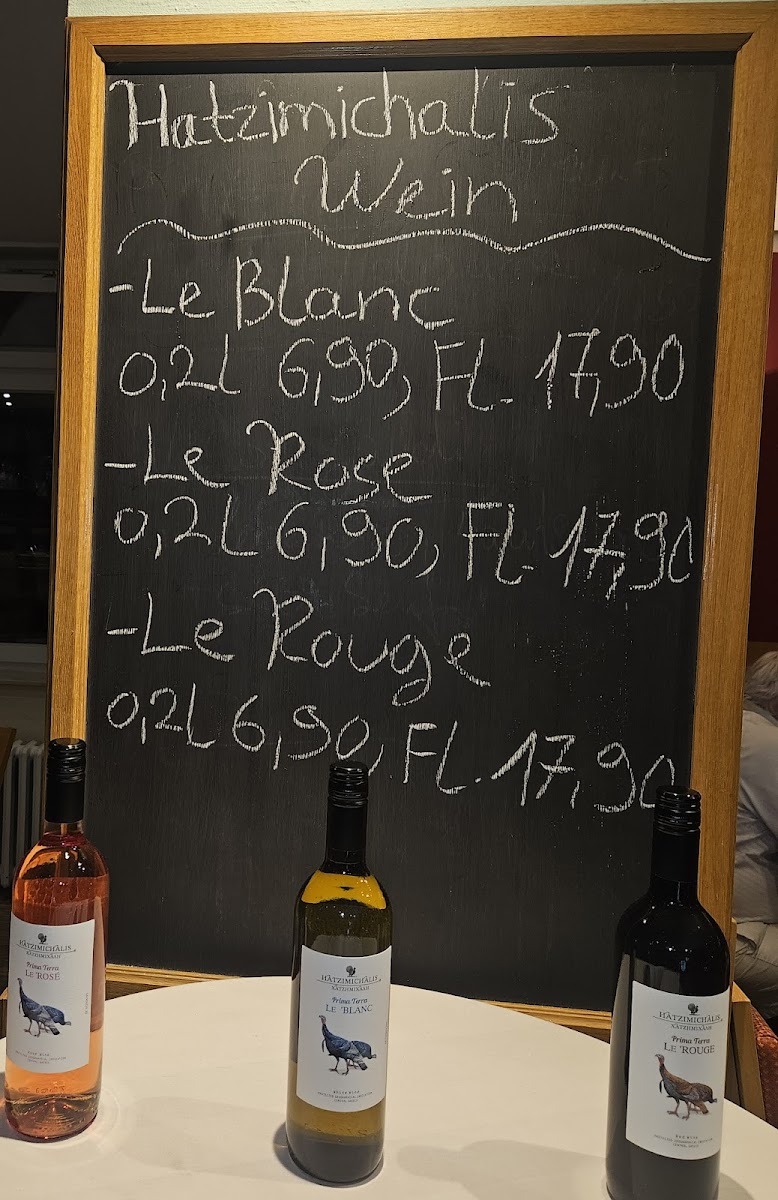 Hatzimichalis
Wein
-Le Blanc
0,2l 6,90, Fl. 17,90
-Le Rose
0,2l 6,90, Fl. 17,90
-Le Rouge
0,2l 6,90, Fl. 17,90
HATZIMICHALIS
ΧΑΤΖΗΜΙΧΑΛΗ
Prima Terra
LE 'ROSÉ
HATZIMICHALIS
ΧΑΤΖΗΜΙΧΑΛΗ
Prima Terra
LE 'BLANC
HATZIMICHALIS
ΧΑΤΖΗΜΙΧΑΛΗ
Prima Terra
LE 'ROUGE
RED WINE